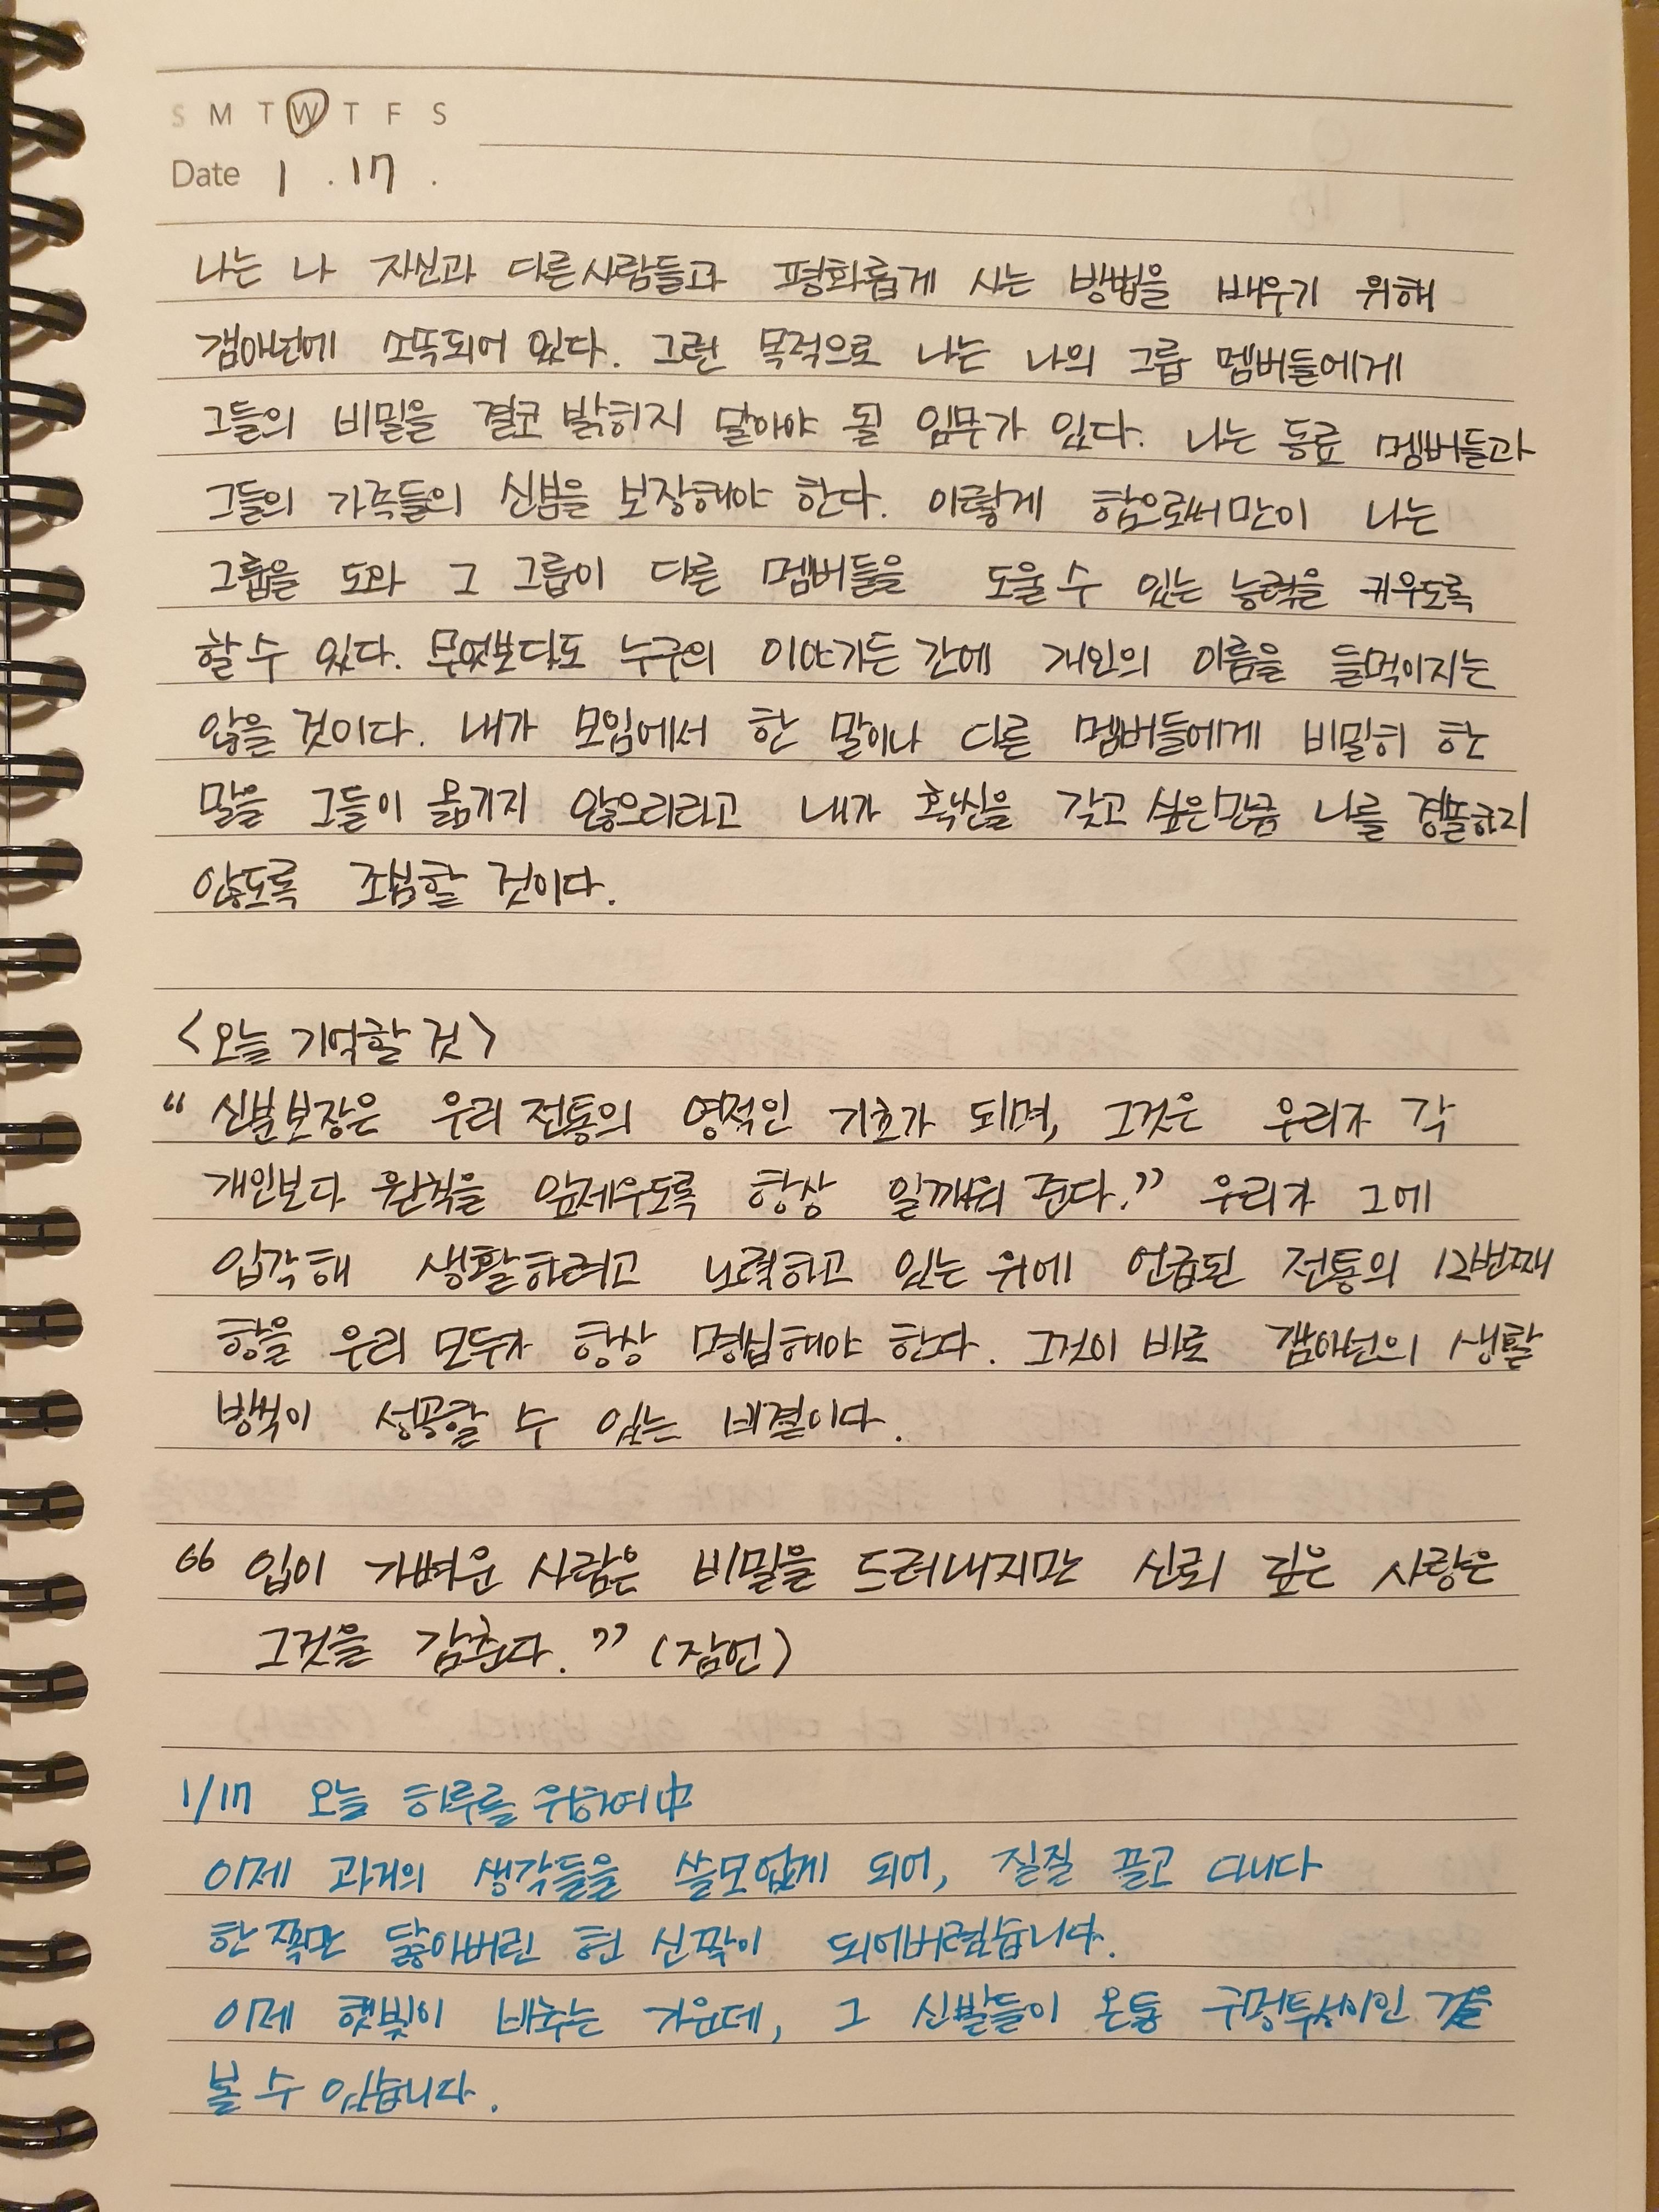 S M T W T F S
Date 1 . 17 .
나는 나 자신과 다른사람들과 평화롭게 사는 방법을 배우기 위해
갬아넌에 소뚝되어 있다. 그런 목적으로 나는 나의 그룹 멤버들에게
그들의 비밀을 결코 밝히지 말아야 될 임무가 있다. 나는 동료 멤버들과
그들의 가족들의 신분을 보장해야 한다. 이렇게 함으로써만이 나는
그룹을 도와 그 그룹이 다른 멤버들을 도울 수 있는 능력을 키우도록
할 수 있다. 무엇보다도 누구의 이야기든 간에 개인의 이름을 들먹이지는
않을 것이다. 내가 모임에서 한 말이나 다른 멤버들에게 비밀히 한
말을 그들이 옮기지 않으리라고 내가 확신을 갖고 싶은만큼 나를 경솔하지
않도록 조심할 것이다.
<오늘 기억할 것>
“ 신분보장은 우리 전통의 영적인 기초가 되며, 그것은 우리가 각
개인보다 원칙을 앞세우도록 항상 일깨워 준다.” 우리가 그에
입각해 생활하려고 노력하고 있는 위에 언급된 전통의 12번째
항을 우리 모두가 항상 명심해야 한다. 그것이 바로 갬아넌의 생활
방식이 성공할 수 있는 비결이다.
“ 입이 가벼운 사람은 비밀을 드러내지만 신뢰 깊은 사람은
그것을 감춘다.” (잠언)
1/17 오늘 하루를 위하여中
이제 과거의 생각들은 쓸모없게 되어, 질질 끌고 다니다
한쪽만 닳아버린 헌 신짝이 되어버렸습니다.
이제 햇빛이 비추는 가운데, 그 신발들이 온통 구멍투성이인 것을
볼 수 있습니다.